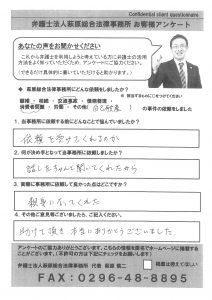 Confidential client questionnaire
弁護士法人萩原総合法律事務所 お客様アンケート
あなたの声をお聞かせください
これから弁護士を利用しようと考えている方に弁護士の活用
方法をよく知っていただくため、アンケートにご協力ください。
(できるだけ具体的に書いていただけると助かります。)
◆ 萩原総合法律事務所にどんな依頼をしましたか?
離婚 ・ 相続 ・ 交通事故 ・ 債務整理 ・
消費者問題 ・ 労働 ・ その他( )の事件の依頼をしました
1. 当事務所に依頼する前にどんなことで悩んでいましたか?
依頼を受けてくれるのか
2. 何が決め手となって当事務所に依頼しましたか?
話しをちゃんと聞いてくれたから
3. 実際に事務所に依頼して良かった点はどこですか?
親身に
4. その他ご意見等ございましたら、ご記入ください。
助けて頂き、本当にありがとうございました
アンケートのご協力ありがとうございます。こちらの情報を匿名でホームページに掲載する
弁護士法人萩原総合法律事務所 代表 萩原 慎二
FAX：0296-48-8895